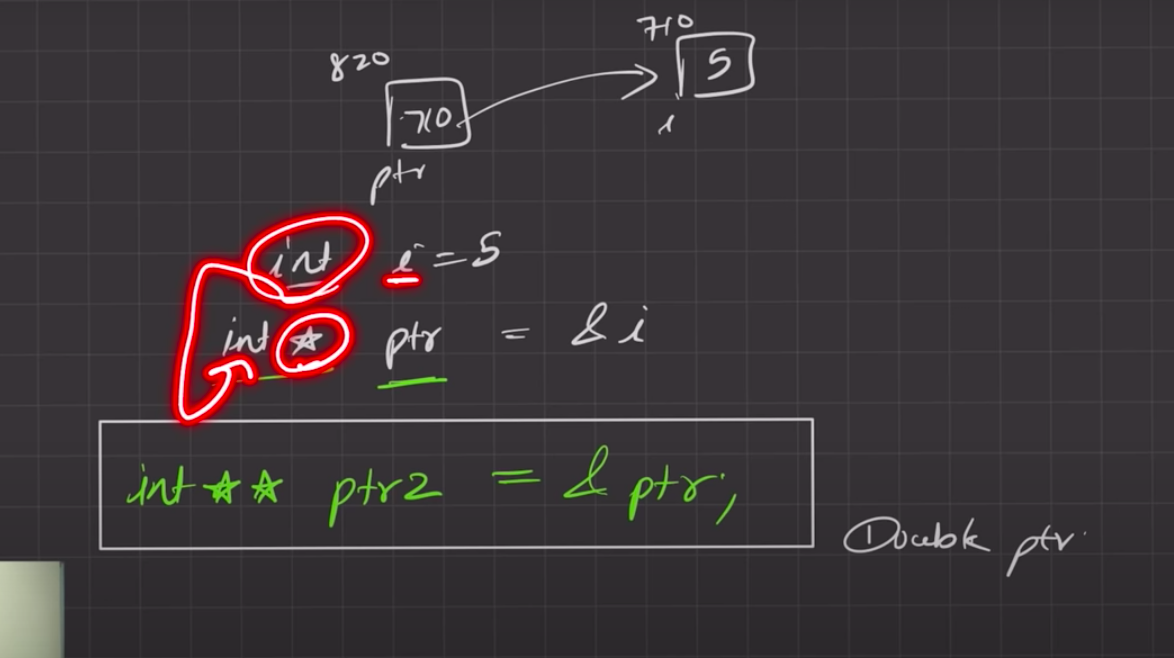 710
820
5
710
i
ptr
int i = 5
int * ptr = & i
int ** ptr2 = & ptr;
Double ptr